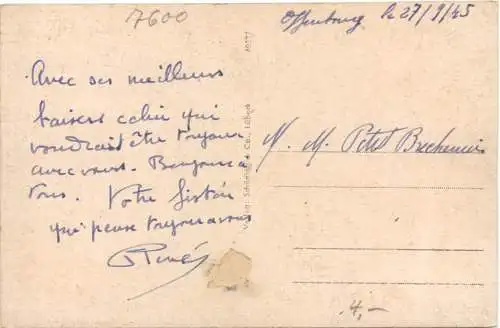 7600
Offenbourg le 27/9/45
Avec ses meilleurs
baisers celui qui
voudrait être toujours
avec vous. Bonjour a
tous. Votre fiston
qui pense toujours a vous
René
M. M. Petit
Verlag: Schöning & Co., Lübeck
4,-